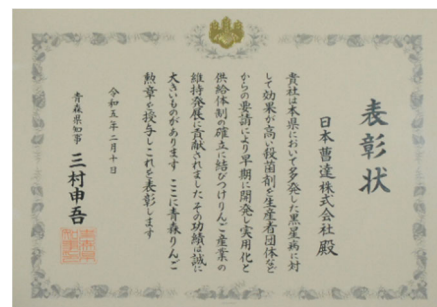 表彰状
日本曹達株式会社 殿
貴社は本県において多発した黒星病に対
して効果が高い殺菌剤を生産者団体など
からの要請により早期に開発し実用化と
供給体制の確立に結びつけりんご産業の
維持発展に貢献されましたその功績は誠に
大きいものがあります ここに青森りんご
勲章を授与しこれを表彰します
令和五年二月十日
青森県知事 三村申吾